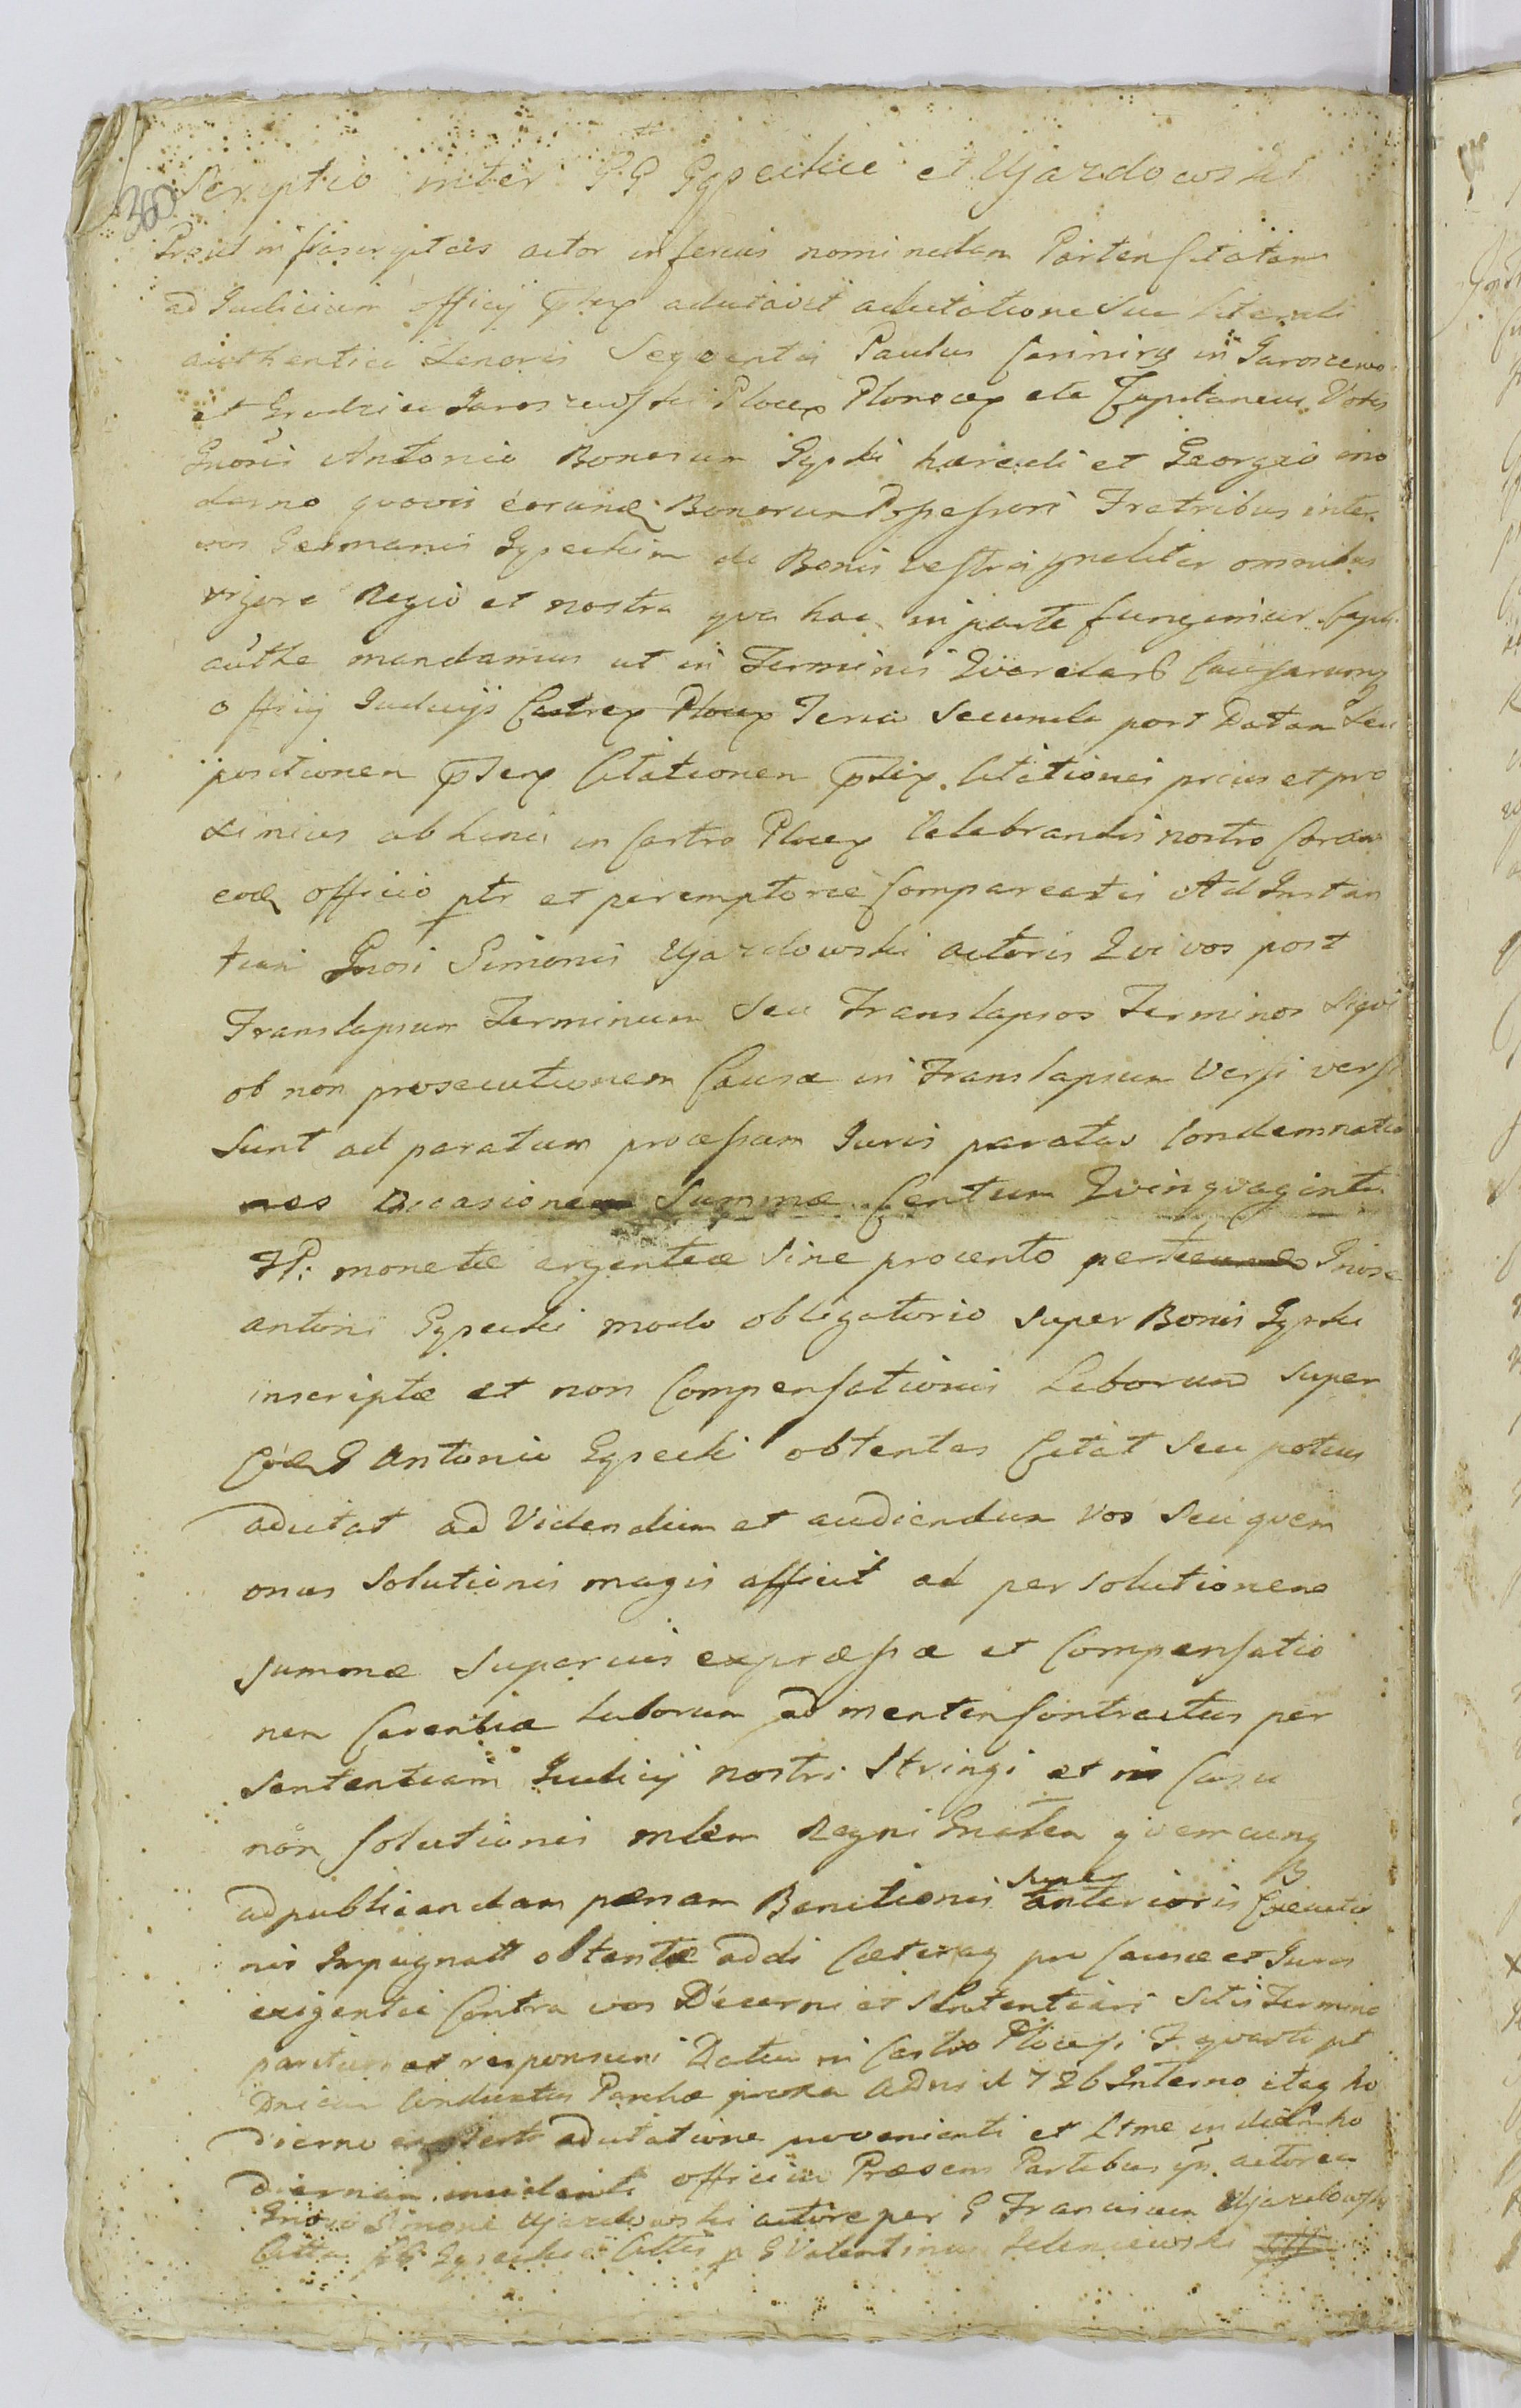 360
Scriptio inter GG Gypeckie et Ujazdowski
Prout infrascriptus actor inferius nominatam Partem Citatam
ad Judicium officij adcitavit adcitatione sua literali
authentica tenoris Seqventis Paulus in Jaroszewo
et Grodzice Jaroszewski Plocen Plonscen etc Capitaneus Vobis
Gnosis Antonio Bonorum Gypki hæredi et Georgio mo
derno qvovis eorund Bonorum Possessori Fratribus inter
vos Germanis Gypeckim de Bonis vestris gnaliter omnibus
vigore Regia et nostra qva hac in parte fungimur Capli
authe mandamus ut in Terminis Qverelarß Causarumq
officij Judicijs Castren Plocen Feria Secunda post Datam Seu
positionem Citationem Citationis prius et pro
ximius ab hinc in Castro Plocen Celebrandis nostro Coram
eod officio ptr et peremptorie Compareatis Ad Instan
tiam Gnosi Simonis Ujazdowski actoris Qvi vos post
Translapsum Terminum seu Translapsos Terminos Siqvi
ob non prosecutionem Causæ in Translapsum versi versi
sunt ad paratum processum Juris paratas Condemnatio
nes Occasione Summæ Centum Qvinqvaginta
Fl: monetæ argenteæ sine procento Gnose
Antoni Gypecki modo obligatorio super Bonis Gypki
inscriptæ et non Compensationis Laborum super
eod G Antonio Gypecki obtentas Citat seu potius
adcitat ad Videndum et audiendum vos seu qvem
onus solutionis magis afficit ad persolutionem
summæ superius expressæ et Compensatio
nem Carentiæ Laborum ad mentem Contractus per
Sententiam Judicij nostri stringi et in Casu
non solutionis mlem Regni Gnalem qvemcunq
ad publicandam pœnam Banitionis super anterioris Executio
nis Impugnatt obtentæ addi Cæteraq pro Causæ et Juris
exigentia Contra vos Decerni et Sententiari Sitis Termino
parituri et responsuri Datum in Castro Plocensi F. qvarta pt
Dnicam Conductus Paschæ proxa ADni 1726 Interno itaq ho
dierno adcitatione provenienti et Ltme in diem ho
diernam incidenti officium Præsens Partibus ips actorea
Gnoso Simone Ujazdowski actore per G Franciscum Ujazdowski
Citta GG Gypeckie Cittis p G Valentinum Zeleniewski